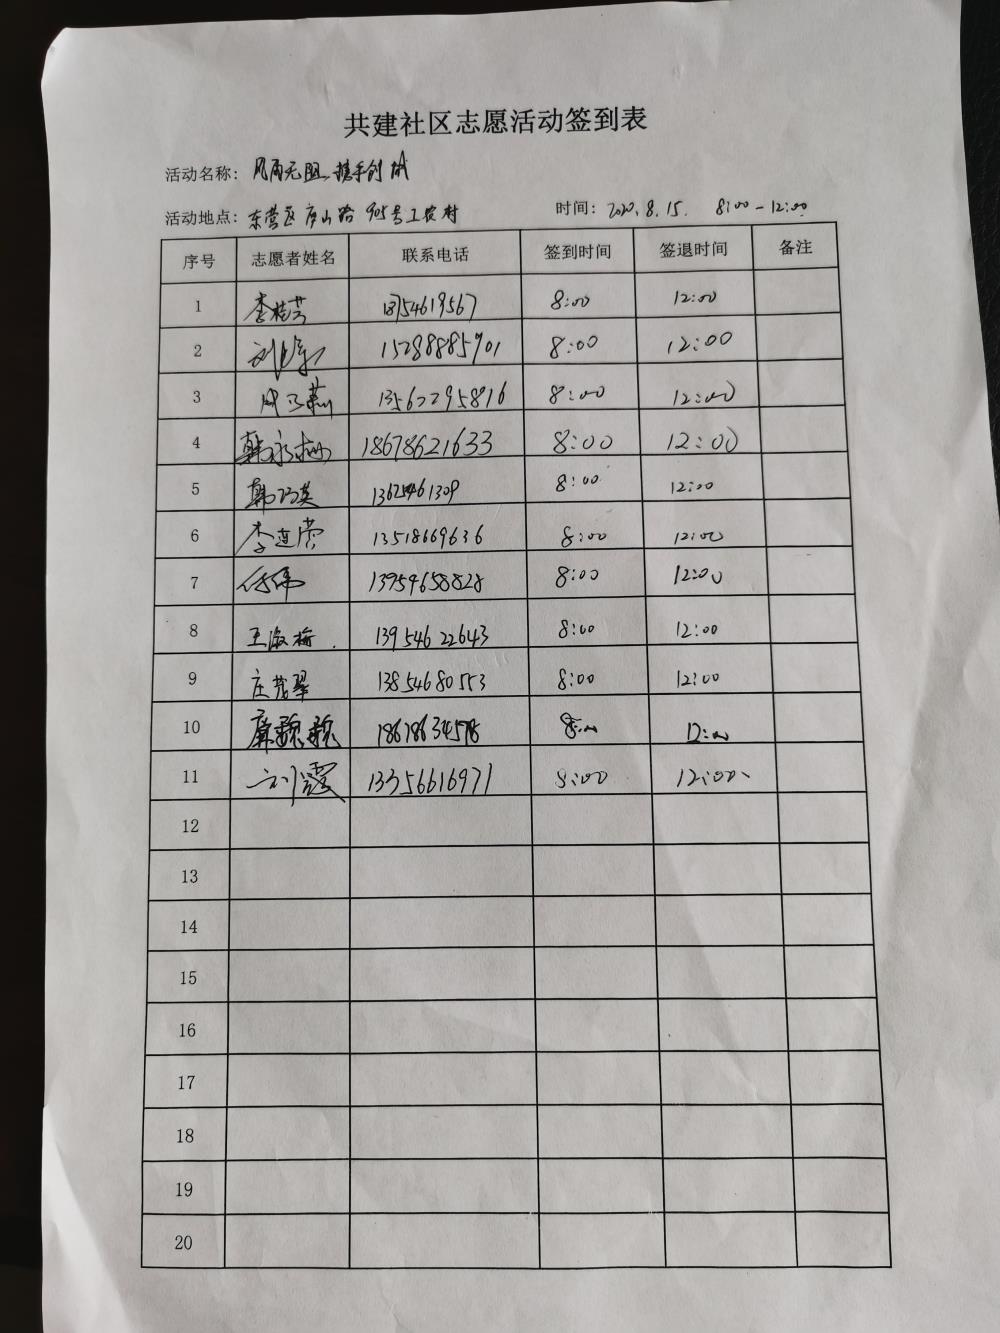 共建社区志愿活动签到表
活动名称: 风雨无阻、携手创城
活动地点: 东营区庐山路905号工农村 时间: 2020.8.15. 8:00-12:00
序号 志愿者姓名 联系电话 签到时间 签退时间 备注
1 李桂芳 18754619567 8:00 12:00
2 15288885901 8:00 12:00
3 13562295816 8:00 12:00
4 韩永梅 18678621633 8:00 12:00
5 韩巧英 13625461309 8:00 12:00
6 李连营 13518669636 8:00 12:00
7 任伟 13954658828 8:00 12:00
8 王淑梅. 13954622643 8:00 12:00
9 庄茂翠 13854680553 8:00 12:00
10 8:00 12:00
11 刘霞 13356616971 8:00 12:00
12
13
14
15
16
17
18
19
20